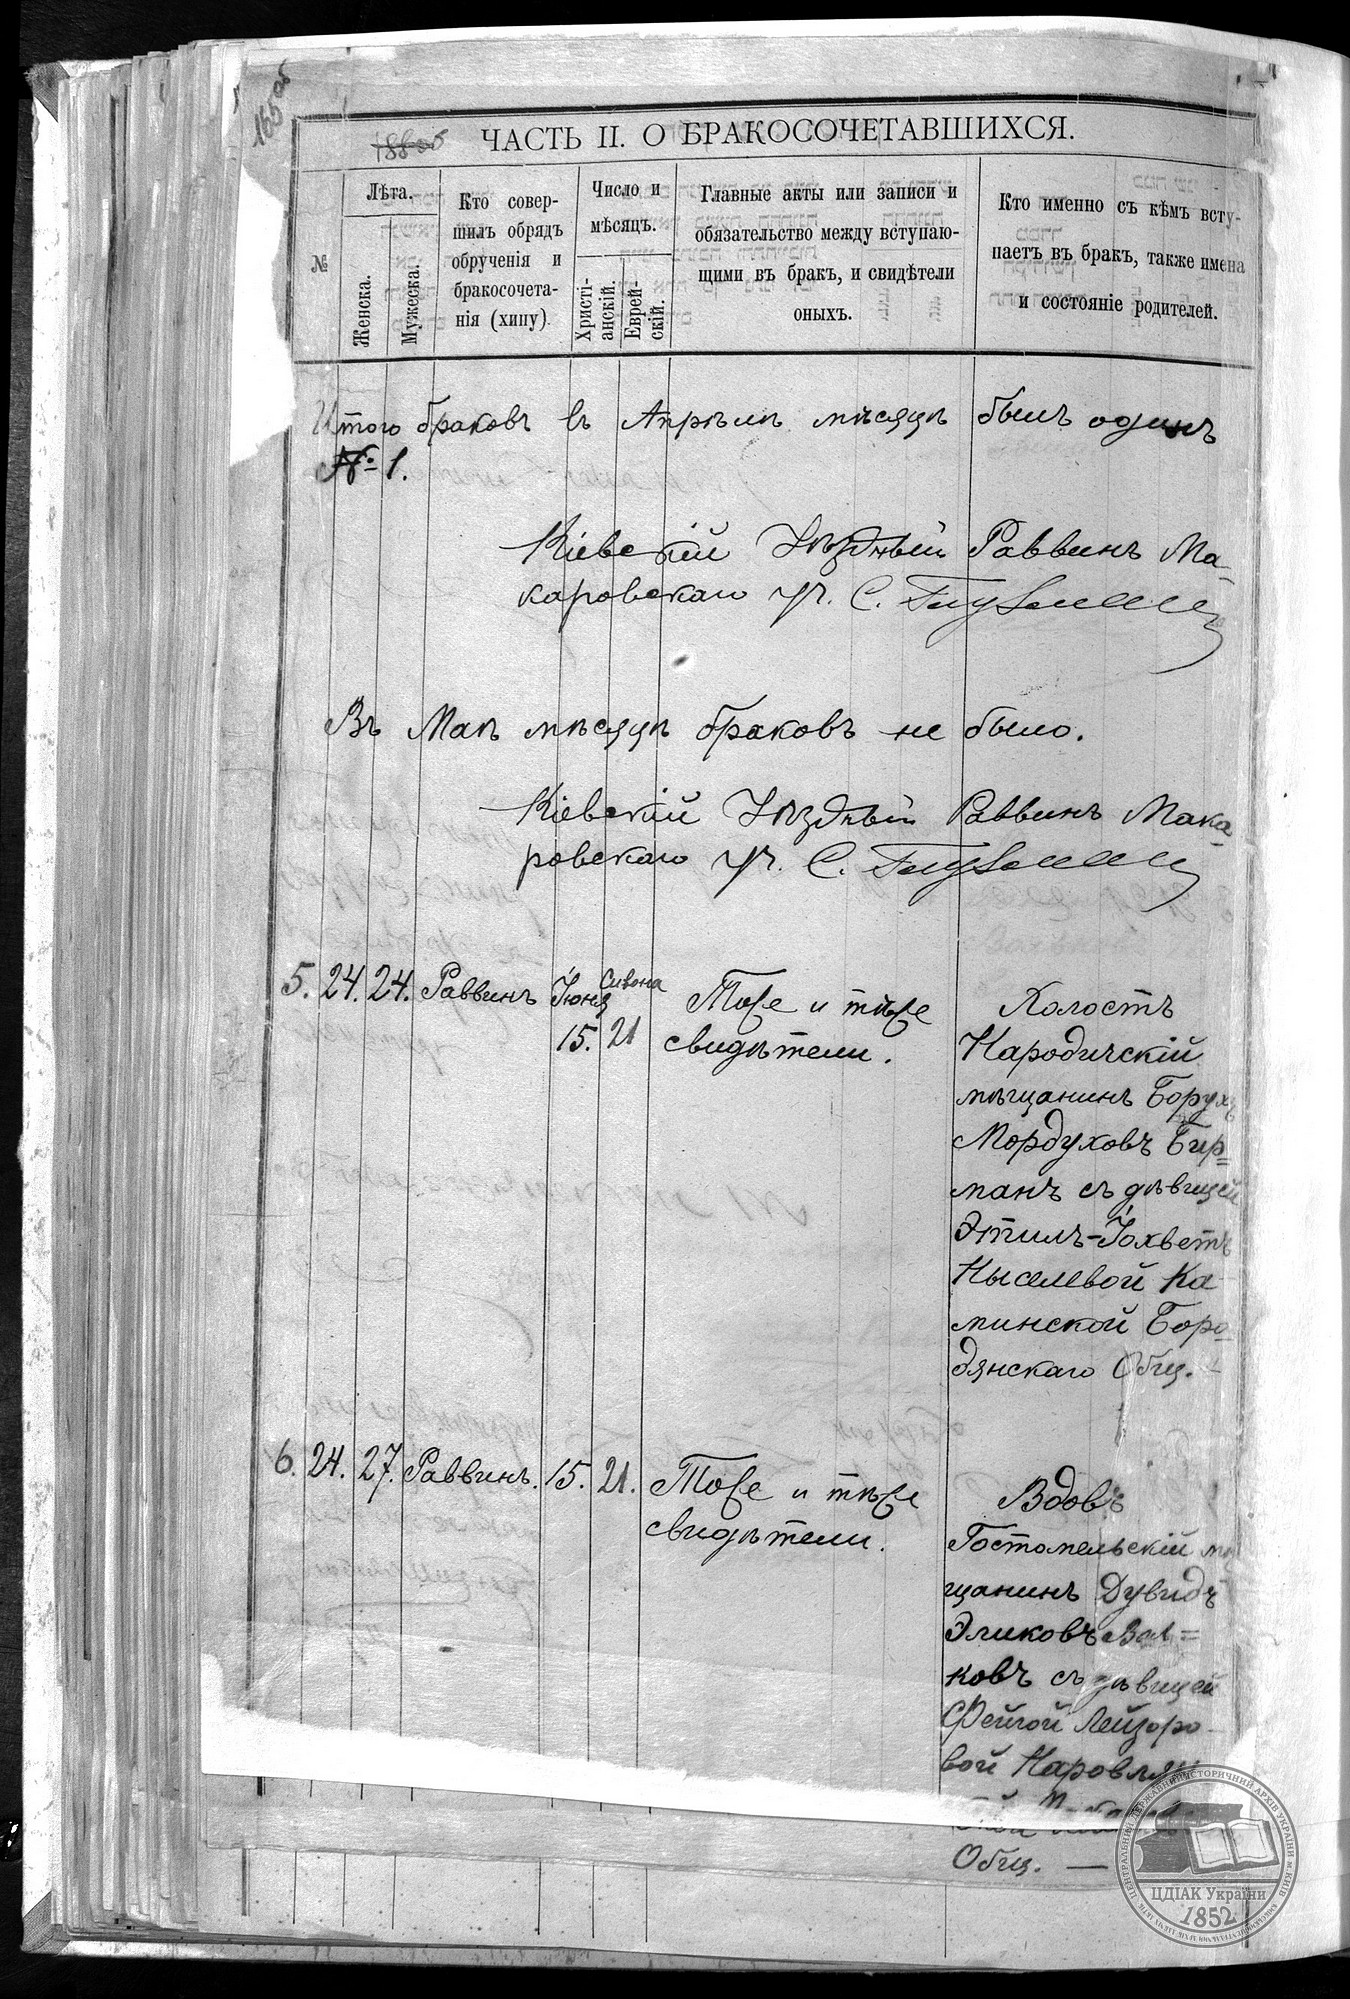 165 об
188 об
ЧАСТЬ II. О БРАКОСОЧЕТАВШИХСЯ.
№
Лѣта.
Женска.
Мужеска.
Кто совер-
шилъ обрядъ
обрученія и
бракосочета-
нія (хипу)
Число и
мѣсяцъ.
Христі-
анскій.
Еврей-
скій.
Главные акты или записи и
обязательство между вступаю-
щими въ бракъ, и свидѣтели
оныхъ.
Кто именно съ кѣмъ всту-
паетъ въ бракъ, также имена
и состояніе родителей.
Итого браковъ въ Апрѣлѣ мѣсяцѣ былъ одинъ
№ 1.
Кіевскій Уѣздный Раввинъ Ма-
каровскаго уч. С.
Въ Маѣ мѣсяцѣ браковъ не было.
Кіевскій Уѣздный Раввинъ Мака-
ровскаго уч. С.
5. 24. 24. Раввинъ Іюня 15. Сивона 21 Тоже и тѣже
свидѣтели.
Холостъ
Народичскій
мѣщанинъ Борухъ
Мордуховъ Бир=
манъ съ дѣвицей
Этилъ-Іохветъ
Ныселевой Ка-
минской Боро=
дянскаго Общ. -
6. 24. 27. Раввинъ. 15. 21. Тоже и тѣже
свидѣтели.
Вдовъ
Гостомельскій мѣ
щанинъ Дувидъ
Эликовъ Вол=
ковъ съ дѣвицей
Фейгой Лейзоро-
вой Наровлян
Общ. —
ЦЕНТРАЛЬНИЙ ДЕРЖАВНИЙ ІСТОРИЧНИЙ АРХІВ УКРАЇНИ м. КИЇВ
ЦДІАК України
1852